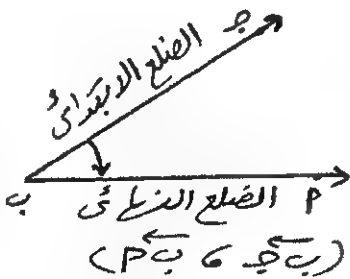 جـ
الضلع الابتدائى
ب
الضلع النهائى
م
(ب جـ ، ب م)